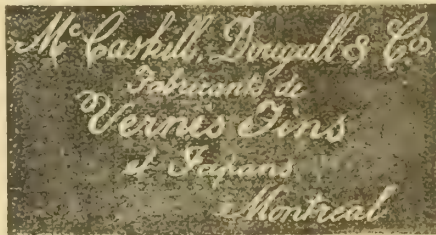 McCaskill, Dougall & Cos
Fabricants de
Vernis Fins
et Japans
Montreal